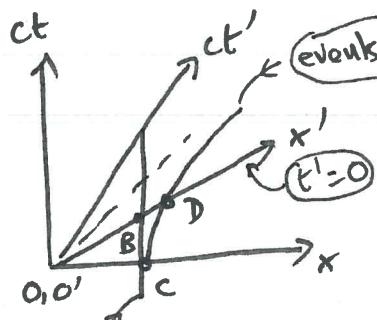 ct
ct'
events
x'
t'=0
D
B
x
0,0'
C